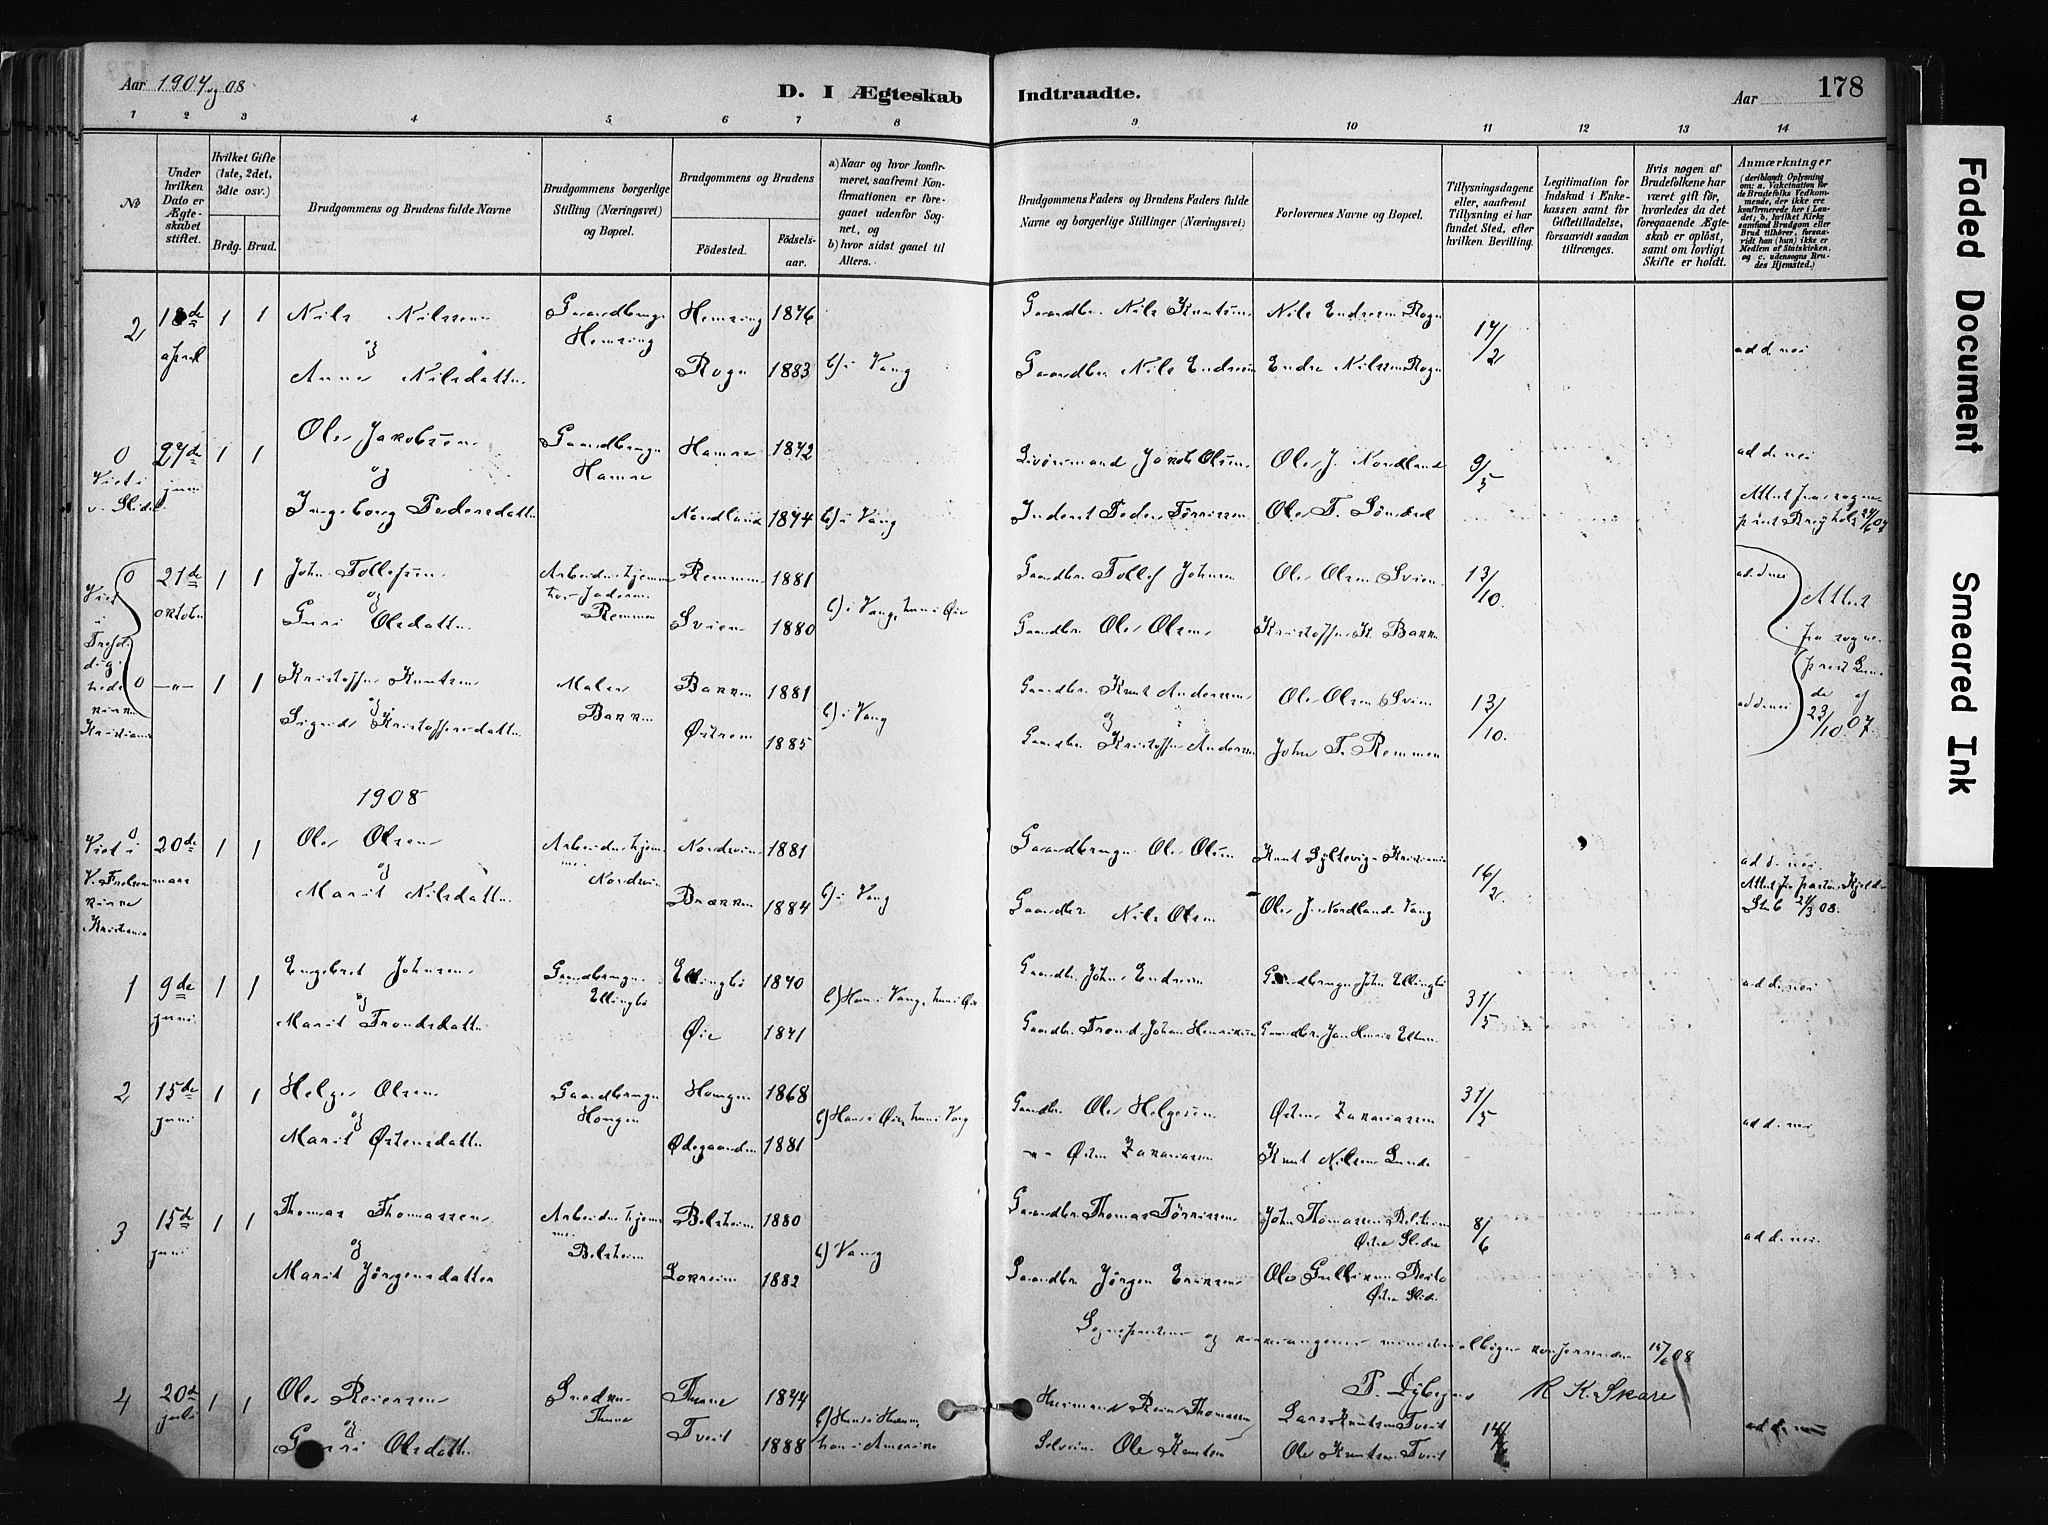 Aar 1907 og 08
D. I Ægteskab
Indtraadte.
Aar
178
1 2 3 4 5 6 7 8 9 10 11 12 13 14
No
Under hvilken Dato er Ægteskabet stiftet.
Hvilket Gifte (1ste, 2det, 3die osv.)
Brdg. Brud.
Brudgommens og Brudens fulde Navne
Brudgommens borgerlige Stilling (Næringsvei) og Bopæl.
Brudgommens og Brudens
Födested.
Födselsaar.
a) Naar og hvor konfirmeret, saafremt Konfirmationen er foregaaet udenfor Sognet, og
b) hvor sidst gaaet til Alters.
Brudgommens Faders og Brudens Faders fulde Navne og borgerlige Stillinger (Næringsvei)
Forlovernes Navne og Bopæl.
Tillysningsdagene eller, saafremt Tillysning ei har fundet Sted, efter hvilken Bevilling.
Legitimation for Indskud i Enkekassen samt for Giftetilladelse, forsaavidt saadan tiltrænges.
Hvis nogen af Brudefolkene har været gift för, hvorledes da det foregaaende Ægteskab er oplöst, samt om lovligt Skifte er holdt.
Anmærkninger
(deriblandt Oplysning om: a. Vakcination for de Brudefolks Vedkommende, der ikke ere konfirmerede her i Landet; b. hvilket Kirkesamfund Brudgom eller Brud tilhörer, forsaavidt han (hun) ikke er Medlem af Statskirken, og c. udensogns Brudes Hjemsted.)
2 18de april 1 1 Nils Nilssen og Gaardbruger Hemsing Hemsing 1876 Gaardbr. Nils Knutsen Nils Endresen Rogn 17/2 ad d. nei
Anne Nilsdatter Rogn 1883 b) i Vang Gaardbr. Nils Endresen Endre Nilssen Rogn
0 Viet i v. Slidre 27de juni 1 1 Ole Jakobsen og Gaardbruger Hamre Hamre 1872 Jakob Olsen Ole J. Nordland 9/5 ad d. nei
Ingeborg Pedersdatter Nordland 1874 b) i Vang Inderst Peder Törrissen Ole T. Attest fra sogneprest
0 21de oktober 1 1 John Tollefsen og Arbeider hjemme hos faderen Remmen Remmen 1881 Gaardbr. Tollef Johnsen Ole Olsen Svien 13/10. ad d. nei
Guri Olsdatter Svien 1880 b) i Vang, hun i Øie Gaardbr. Ole Olsen Kristoffer K. Bakken
Viet i Trefoldighedskirken Kristiania
Attest fra sogneprest Lunde af 23/10 07
0 -"- 1 1 Kristoffer Knutsen og Maler Bakken Bakken 1881 Gaardbr. Knut Andersen og Ole Olsen Svien 13/10. ad d. nei
Sigrid Kristoffersdatter Østrem 1885 b) i Vang Gaardbr. Kristoffer Andersen John T. Remmen
1908
0 Viet i V. Frelsers kirke Kristiania 20de mars 1 1 Ole Olsen og Arbeider hjemme Nordsvien Nordsvien 1881 Gaardbruger Ole Olsen Knut Kristiania 16/2. ad d. nei
Marit Nilsdatter Brækken 1884 b) i Vang Gaardbr. Nils Olsen Ole J. Nordland Vang Attest fra pastor
1 9de juni 1 1 Engebret Johnsen og Gaardbruger Ellingbö Ellingbö 1840 b) Han i Vang, hun i Øie Gaardbr. John Endresen Gaardbruger John Ellingbö 31/5 ad d. nei
Marit Trondsdatter Øie 1841 Gaardbr. Trond Johan Henriksen Gaardbr. Jan Henrik
2 15de juni 1 1 Helge Olsen og Gaardbruger Hougen Hougen 1868 b) Han i Øie, hun i Vang Gaardbr. Ole Helgesen Østen Zakariassen 31/5 ad d. nei
Marit Østensdatter Ødegaarden 1881 -"- Østen Zakariasen Knut Nilsen Lunde
3 15de juni 1 1 Thomas Thomassen og Arbeider hjemme Belsheim Belsheim 1880 b) Vang Gaardbr. Thomas Törrissen John Thomassen Belsheim Østre Slidre 8/6 ad d. nei.
Marit Jörgensdatter Lokreim 1882 Gaardbr. Jörgen Eriksen Ole Gulliksen Østre Slid.
Sognepresten og kirkesangeren ministerialböger konfererede 15/6 08
R. K. Skare
4 20de juli 1 1 Ole Reiersen og Snedker Thune Thune 1874 b) Han i hun i Amerika Husmand Reier Thomassen Lars Knutsen Tveit ad d. nei
Guri Olsdatter Tveit 1888 Selveier Ole Knutsen Ole Knutsen Tveit
Faded Document
Smeared Ink